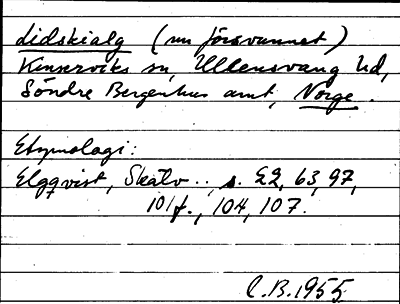 Lidskialg (nu försvunnet)
Kinserviks sn, Ullensvang hd,
Söndre Bergenhus amt, Norge.
Etymologi:
Elgqvist, Skälv.., s. 22, 63, 97,
101f., 104, 107.
C.B. 1955